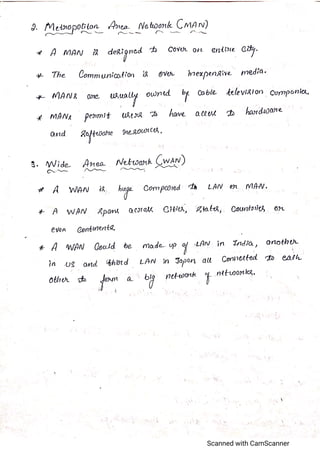 2. Metropolitan Area Network (MAN)
* A MAN is designed to cover on entire city.
* The Communication is over inexpensive media.
* MANs are usually owned by cable television companies.
* MANs permit users to have access to hardware
and software resources.
3. Wide Area Network (WAN)
* A WAN is huge Compared to LAN or MAN.
* A WAN spans across Cities, States, Countries, or
even Continents
* A WAN Could be made up of LAN in India, another
in US and third LAN in Japan all Connected to each
other to form a big network of networks.
Scanned with CamScanner